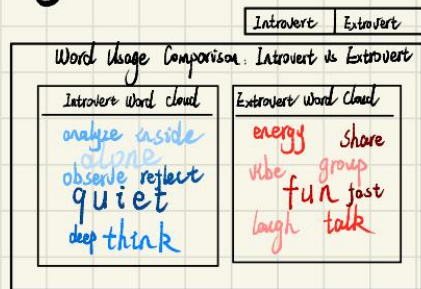 Introvert Extrovert
Word Usage Comparison: Introvert vs Extrovert
Introvert Word cloud
analyze inside
alone
observe reflect
quiet
deep think
Extrovert Word Cloud
energy share
vibe group
fun fast
laugh talk